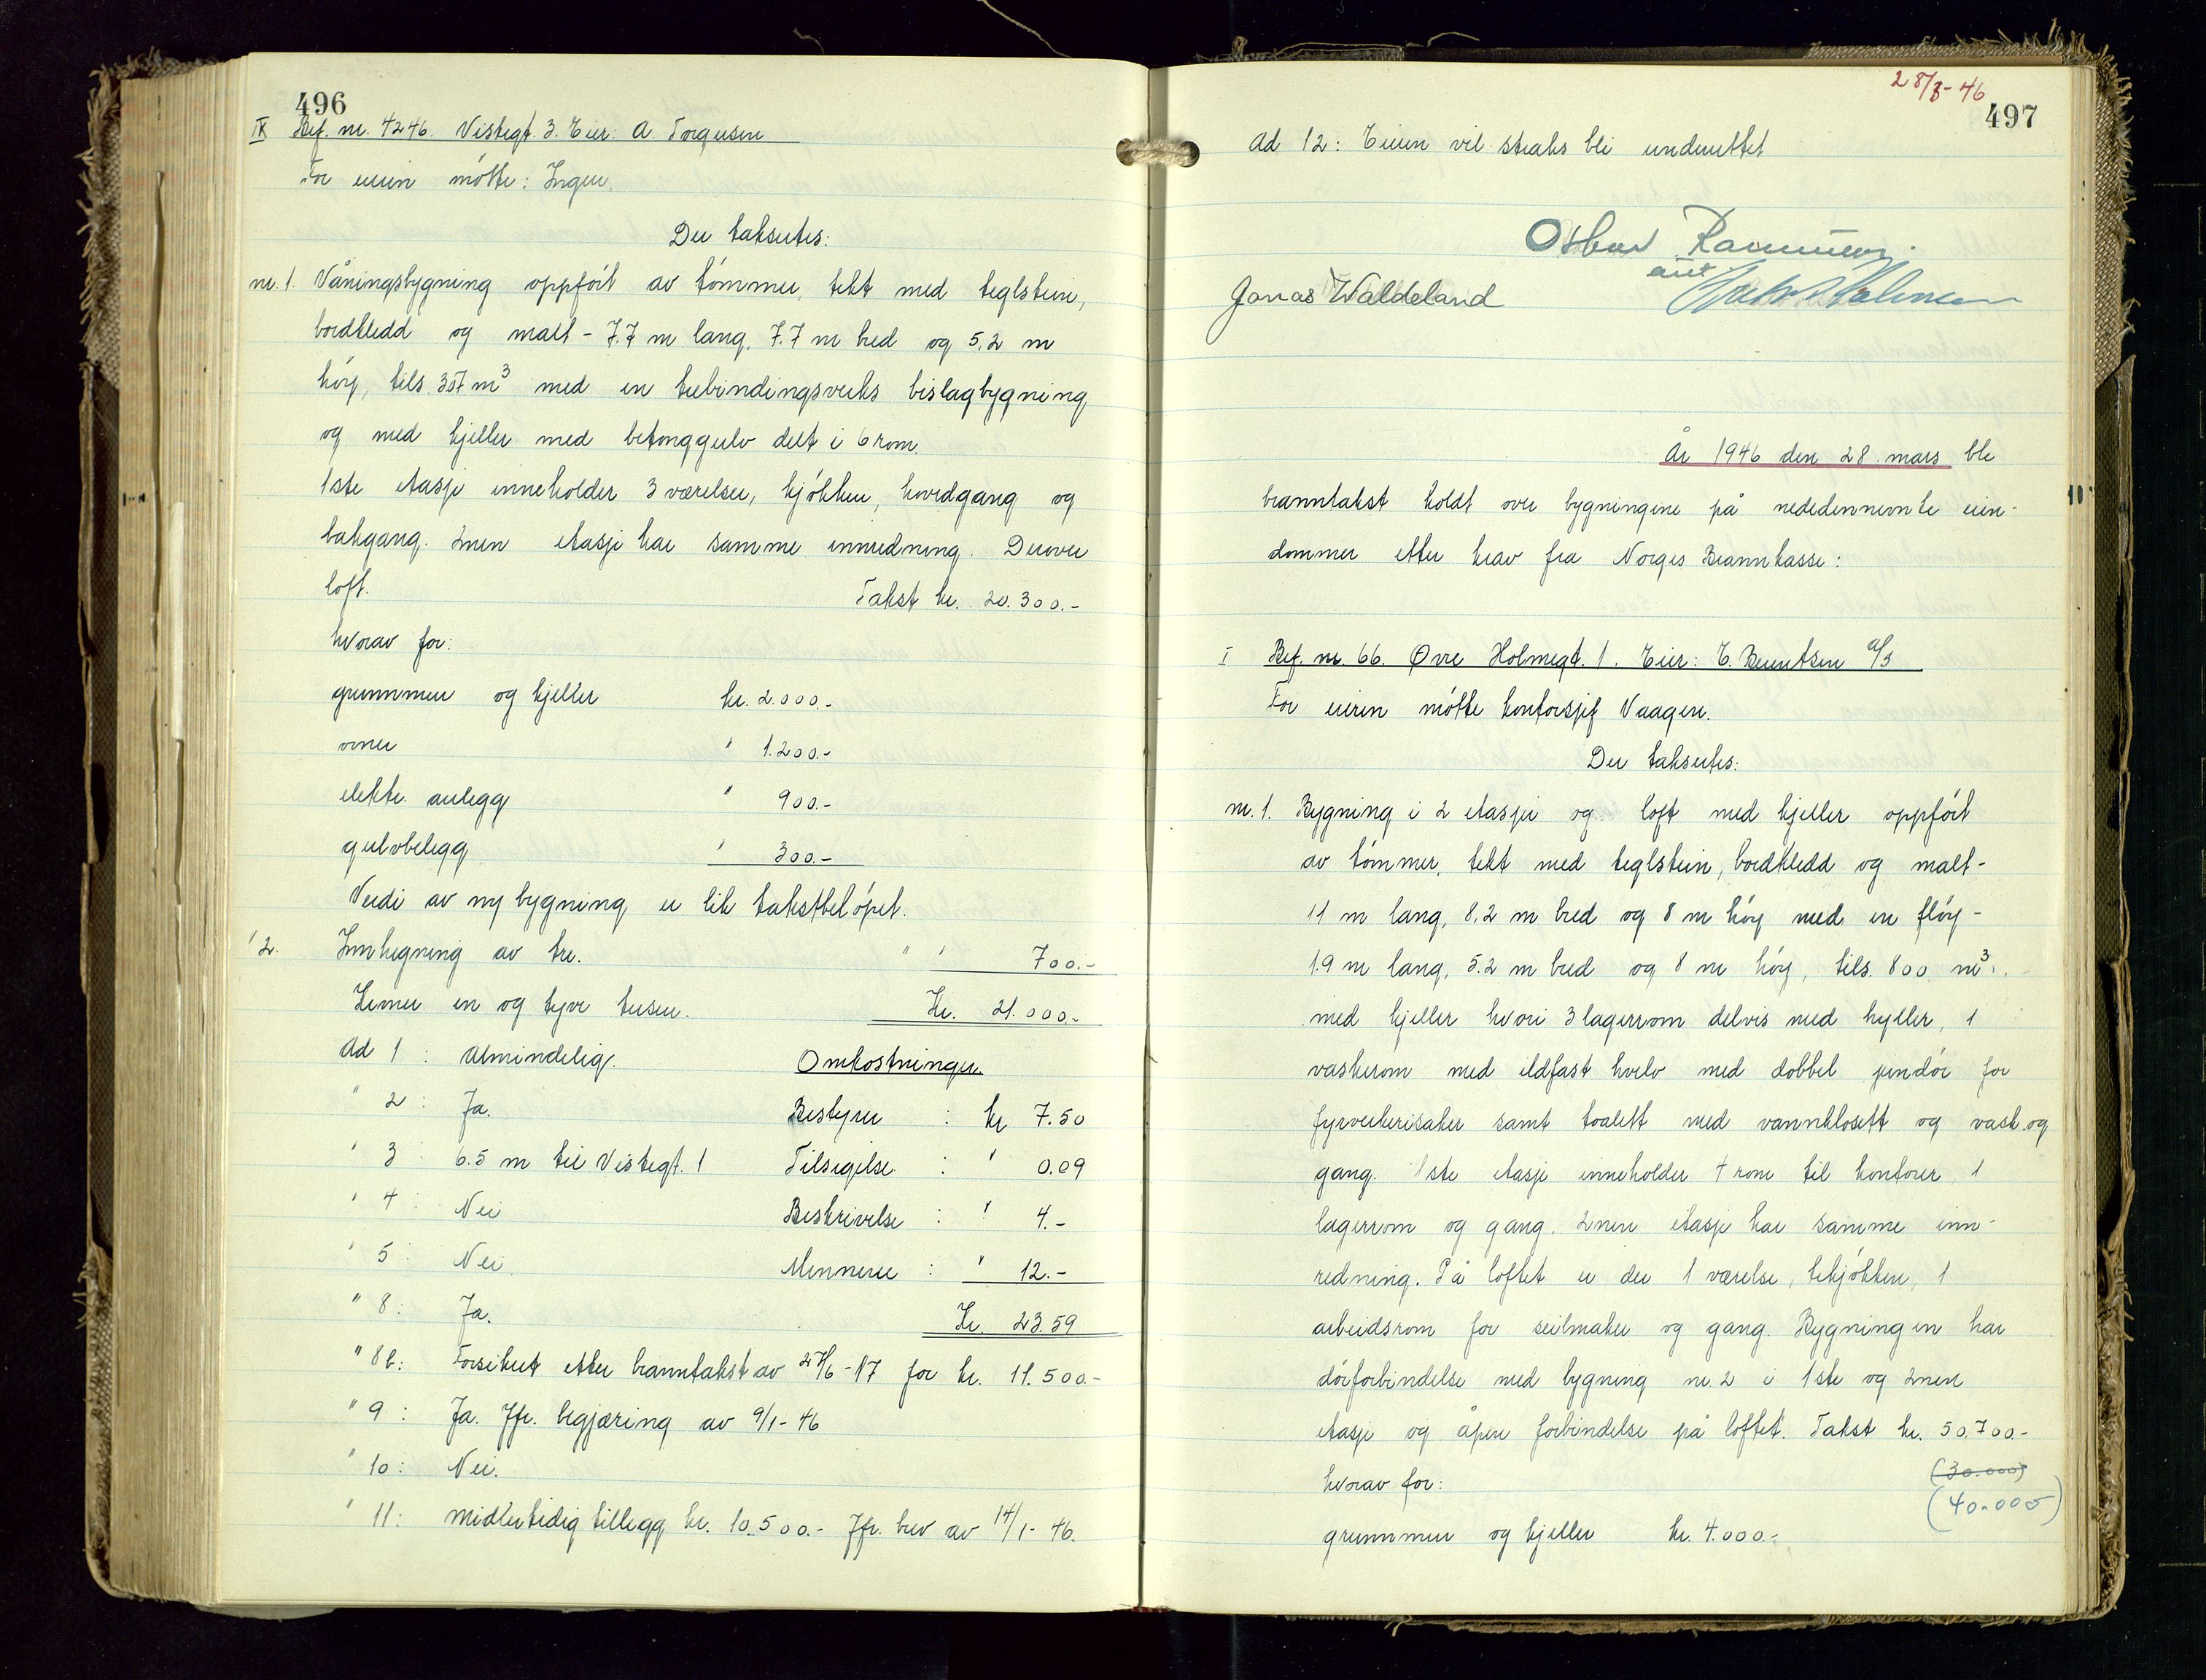 496
IX Bef. nr. 4246. Vistegt. 3. Eier: A. Torgersen
For eieren møtte: Ingen.
Der takseres:
nr. 1. Våningsbygning oppført av tømmer, tekt med teglstein,
bordkledd og malt - 7.7 m lang, 7.7 m bred og 5,2 m
høy, tils. 357 m³ med en trebindingsverks bislagbygning
og med kjeller med betonggulv delt i 6 rom.
1ste etasje inneholder 3 værelser, kjøkken, hovedgang og
bakgang. 2nen etasje har samme innredning. Derover
loft. Takst kr. 20.300.-
hvorav for:
grunnmur og kjeller kr. 2.000.-
ovner " 1.200.-
elektr. anlegg " 900.-
gulvbelegg " 300.-
Verdi av ny bygning er lik takstbeløpet.
" 2. Innhegning av tre. " " 700.-
Kroner en og tyve tusen. Kr. 21.000.-
Ad 1 : Almindelig. Omkostninger
" 2 : Ja. Bestyrer : kr 7.50
" 3 : 6.5 m til Vistegt. 1 Tilsigelse : " 0.09
" 4 : Nei Beskrivelse : " 4.-
" 5 : Nei. Mennene : " 12.-
" 8 : Ja. Kr. 23.59
" 8b: Forsikret etter branntakst av 27/6-17 for kr. 11.500.-
" 9 : Ja. Jfr. begjæring av 9/1-46
" 10 : Nei.
" 11: Midlertidig tillegg kr. 10.500.- Jfr. brev av 14/1-46.
28/3-46
497
Ad 12: Eieren vil straks bli underrettet
Jonas Waldeland
År 1946 den 28. mars ble
branntakst holdt over bygningene på nedennevnte eien-
dommer etter krav fra Norges Brannkasse:
I Bef. nr. 66. Øvre Holmegt. 1. Eier: E. Berentsen A/S
For eieren møtte kontorsjef Vaagen.
Der takseres:
nr. 1. Bygning i 2 etasjer og loft med kjeller oppført
av tømmer, tekt med teglstein, bordkledd og malt -
11 m lang, 8.2 m bred og 8 m høy med en fløy -
1.9 m lang, 5.2 m bred og 8 m høy, tils. 800 m³.
med kjeller hvori 3 lagerrom delvis med hyller, 1
vaskerom med ildfast hvelv med dobbel jerndør for
fyrverkerisaker samt toalett med vannklosett og vask og
gang. 1ste etasje inneholder 4 rom til kontorer, 1
lagerrom og gang. 2nen etasje har samme inn-
redning. På loftet er der 1 værelse, tekjøkken, 1
arbeidsrom for seilmaker og gang. Bygningen har
dørforbindelse med bygning nr. 2 i 1ste og 2nen
etasje og åpen forbindelse på loftet. Takst kr. 50.700.-
hvorav for: (30.000)
(40.000)
grunnmur og kjeller kr. 4.000.-